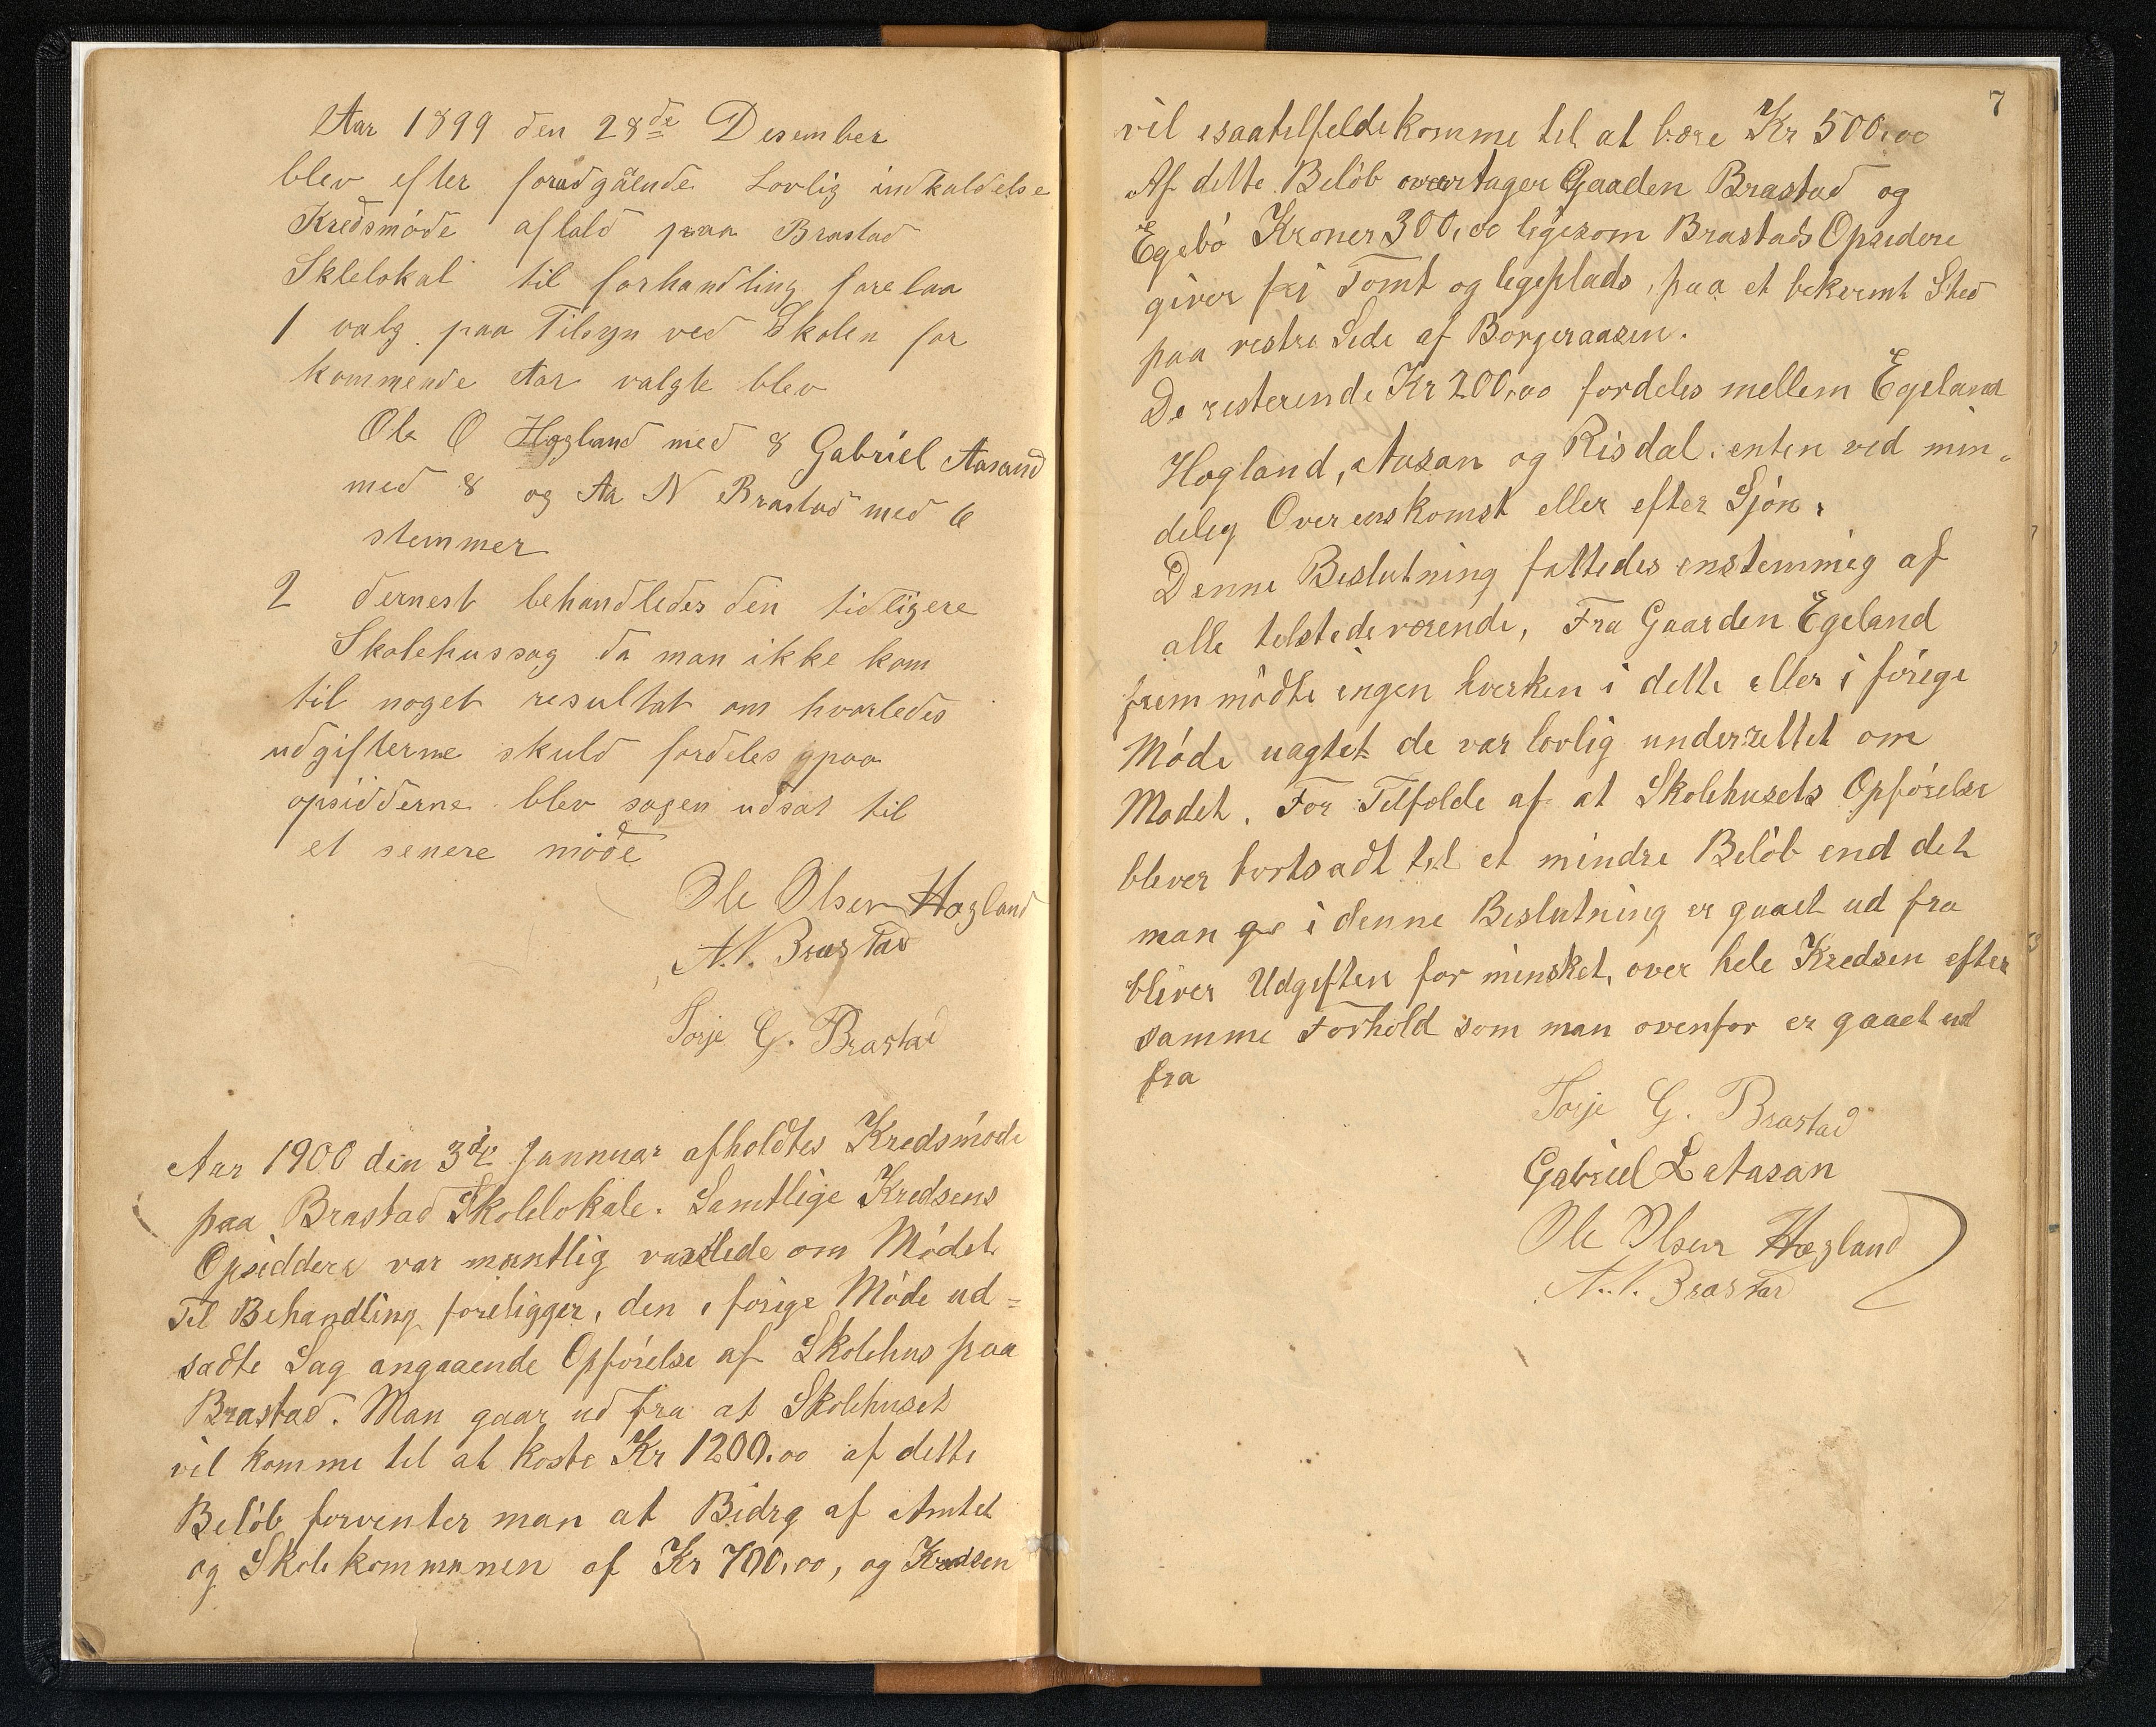 Aar 1899 den 28de Desember
blev efter foradgålende Lovlig indkaldelse
Kredsmøde aflald paa Brastad
Sklelokal til forhandling forelaa
1 valg paa Tilsyn ved Skolen for
kommende Aar valgte blev
Ole O Hogland med 8 Gabriel Aasand
med 8 og Aa N Brastad med 6
stemmer
2 dernest behandledes den tidligere
Skolehussag da man ikke kom
til noget resultat om hvorledes
udgifterne skuld fordeles paa
opsidderne blev sagen udsat til
et senere møde
Ole Olsen Hogland
A. N. Brastad
Torje G. Brastad
Aar 1900 den 3die Jannuar afholdtes Kredsmøde
paa Brastad Skolelokale. Samtlige Kredsens
Opsiddere var muntlig varslede om Mødet
Til Behandling foreligger, den i forige Møde ud=
sadte Sag angaaende Opførelse af Skolehus paa
Brastad. Man gaar ud fra at Skolehuset
vil komme til at koste Kr 1200.00 af dette
Beløb forventer man at Bidrg af Amtet
og Skolekommunen af Kr 700,00, og Kredsen
7
vil isaatilfelde komme til at bære Kr 500,00
Af dette Beløb overtager Gaaden Brastad og
Egebø Kroner 300,00 ligesom Brastads Opsidere
giver fri Tomt og legeplads, paa et bekvemt Sted
paa vestre Side af Borgeraasen.
De resterende Kr 200,00 fordeles mellem Egeland
Hogland, Aasan og Risdal. enten ved min-
delig Overenskomst eller efter Sjøn.
Denne Beslutning fattedes enstemmig af
alle tilstedeværende, Fra Gaarden Egeland
frem mødte ingen hverken i dette eller i forige
Møde uagtet de var lovlig underrettet om
Mødet. For Tilfælde af at Skolehusets Opførelse
bliver bortsadt til et mindre Beløb end det
man i denne Beslutning er gaaet ud fra
bliver Udgiften for minsket, over hele Kredsen efter
samme Forhold som man ovenfor er gaaet ud
fra
Torje G. Brastad
Gabriel L Aasan
Ole Olsen Hogland
A. N. Brastad